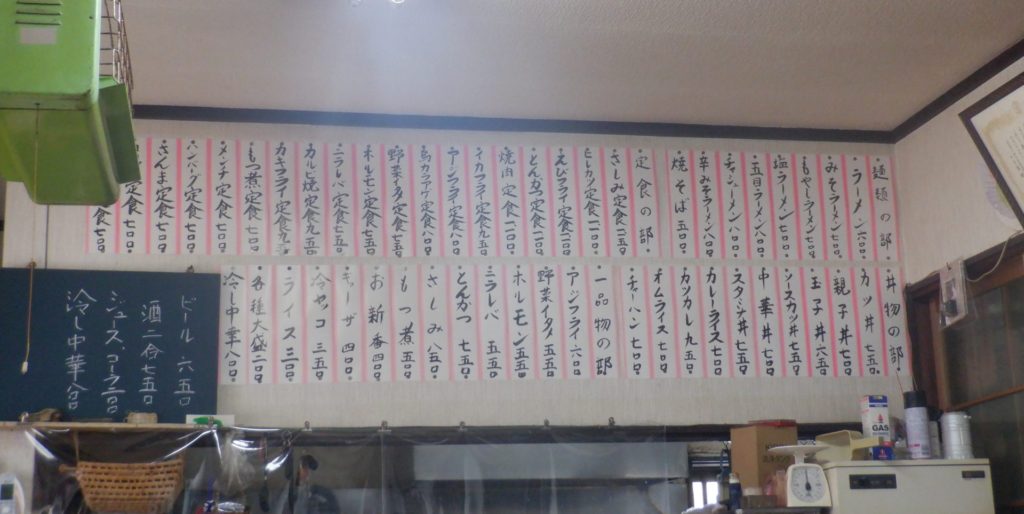 麺類の部
ラーメン 六〇〇
みそラーメン 七〇〇
もやしラーメン 七〇〇
塩ラーメン 七〇〇
五目ラーメン 八〇〇
チャーシューメン 八〇〇
辛みそラーメン 八〇〇
焼そば 五〇〇
定食の部
さしみ定食 一二五〇
ヒレカツ定食 一二〇〇
えびフライ定食 一二〇〇
とんかつ定食 一一〇〇
焼肉定食 一一〇〇
イカフライ定食 九五〇
アジフライ定食 一〇〇〇
鳥カラアゲ定食 八〇〇
野菜イタメ定食 七五〇
ホルモン定食 七五〇
ニラレバ定食 七五〇
カルビ焼定食 九五〇
カキフライ定食 九五〇
もつ煮定食 七〇〇
メンチ定食 七〇〇
ハンバーグ定食 七〇〇
さんま定食 七〇〇
定食 七〇〇
定食 七〇〇
丼物の部
カツ丼 七五〇
親子丼 七〇〇
玉子丼 六五〇
ソースカツ丼 七五〇
中華丼 七〇〇
スタミナ丼 七五〇
カレーライス 六〇〇
カツカレー 九五〇
オムライス 七〇〇
チャーハン 七〇〇
一品物の部
アジフライ 六〇〇
野菜イタメ 五五〇
ホルモン 五五〇
ニラレバ 五五〇
とんかつ 七五〇
さしみ 八五〇
もつ煮 五〇〇
お新香 四〇〇
ギョーザ 四〇〇
冷ヤッコ 三五〇
ライス 三〇〇
各種大盛 二〇〇
冷し中華 八〇〇
ビール 六五〇
酒二合 七五〇
ジュース、コーラ 二〇〇
冷し中華 八〇〇
GAS